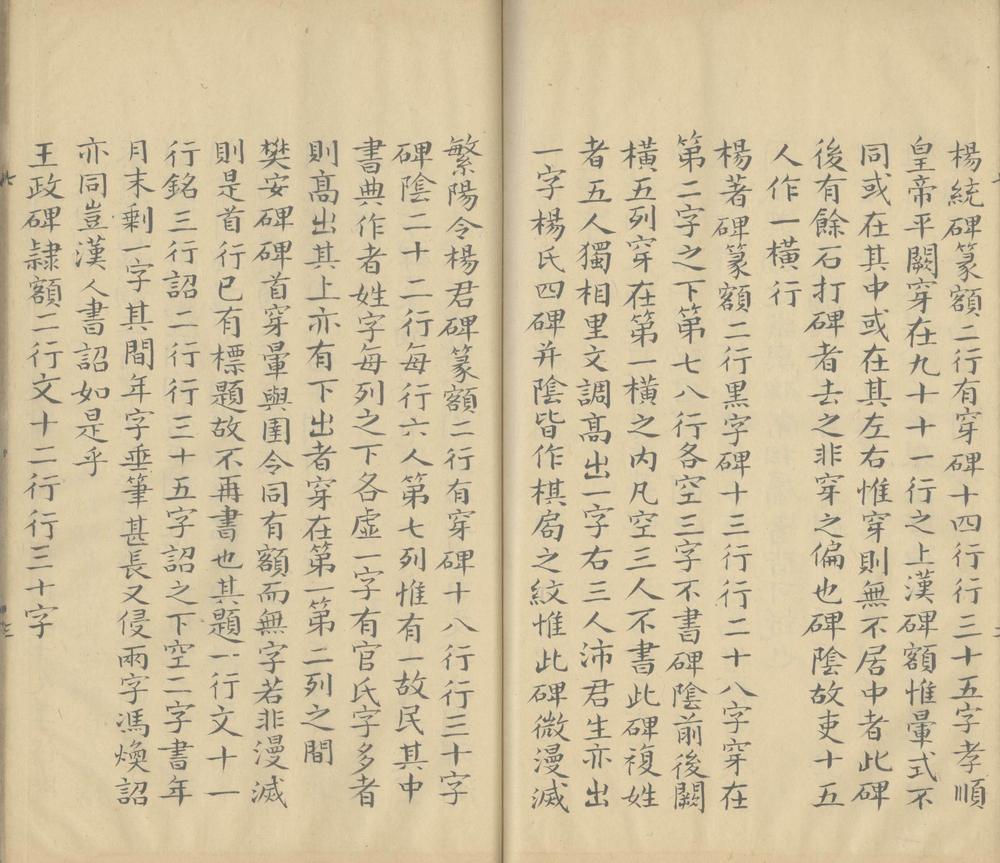 楊統碑篆額二行有穿碑十四行行三十五字孝順
皇帝平闕穿在九十十一行之上漢碑額惟暈式不
同或在其中或在其左右惟穿則無不居中者此碑
後有餘石打碑者去之非穿之偏也碑陰故吏十五
人作一橫行
楊著碑篆額二行黑字碑十三行行二十八字穿在
第二字之下第七八行各空三字不書碑陰前後闕
橫五列穿在第一橫之内凡空三人不書此碑複姓
者五人獨相里文調髙出一字右三人沛君生亦出
一字楊氏四碑并陰皆作棋局之紋惟此碑微漫滅
繁陽令楊君碑篆額二行有穿碑十八行行三十字
碑陰二十二行每行六人第七列惟有一故民其中
書典作者姓字每列之下各虛一字有官氏字多者
則髙出其上亦有下出者穿在第一第二列之間
樊安碑碑首穿暈與圉令同有額而無字若非漫滅
則是首行已有標題故不再書也其題一行文十一
行銘三行詔二行行三十五字詔之下空二字書年
月末剩一字其間年字垂筆甚長又侵兩字馮煥詔
亦同豈漢人書詔如是乎
王政碑隸額二行文十二行行三十字